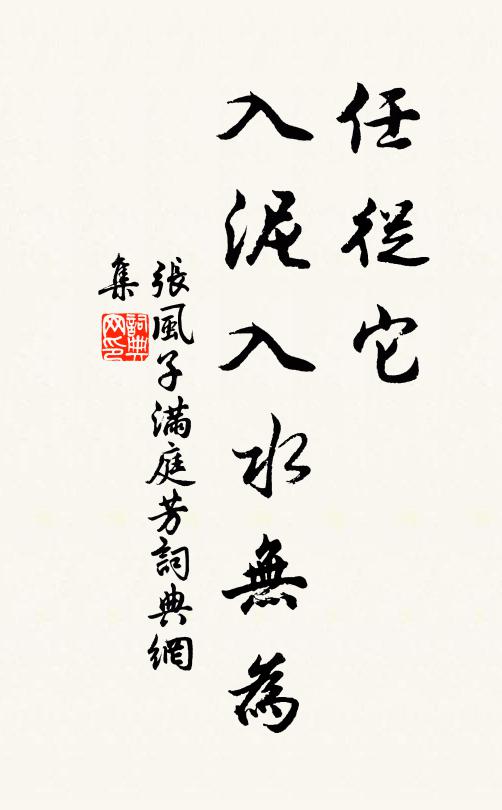 任從它
入泥入水無為
張風子滿庭芳詞典網
集
詞典网印